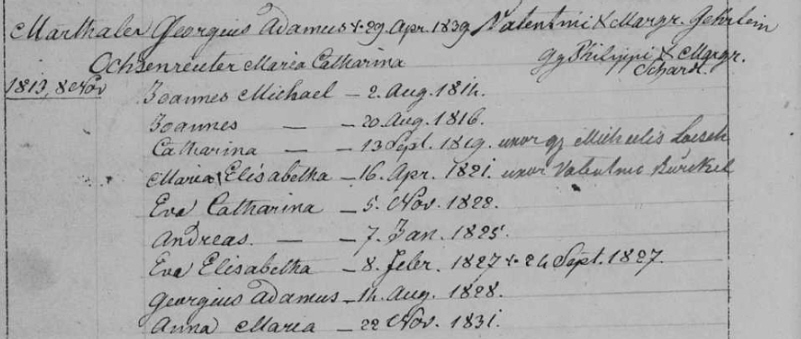 Marthaler Georgius Adamus + 29. Apr. 1839 Valentini & Margr. Gehrlein
Ochsenreuter Maria Catharina gz Philippi & Margr. Schardt
1813, 8 Nov
Joannes Michael — 2. Aug. 1814.
Joannes — — 20. Aug. 1816.
Catharina — — 13 Sept. 1819. uxor gz Michaelis Loesch
Maria Elisabetha — 16. Apr. 1821. uxor Valentini Bürckel
Eva Catharina — 5. Nov. 1822.
Andreas. — — 7. Jan. 1825.
Eva Elisabetha — 8. Febr. 1827 + 24 Sept. 1827.
Georgius Adamus — 14. Aug. 1828.
Anna Maria — 22 Nov. 1831.